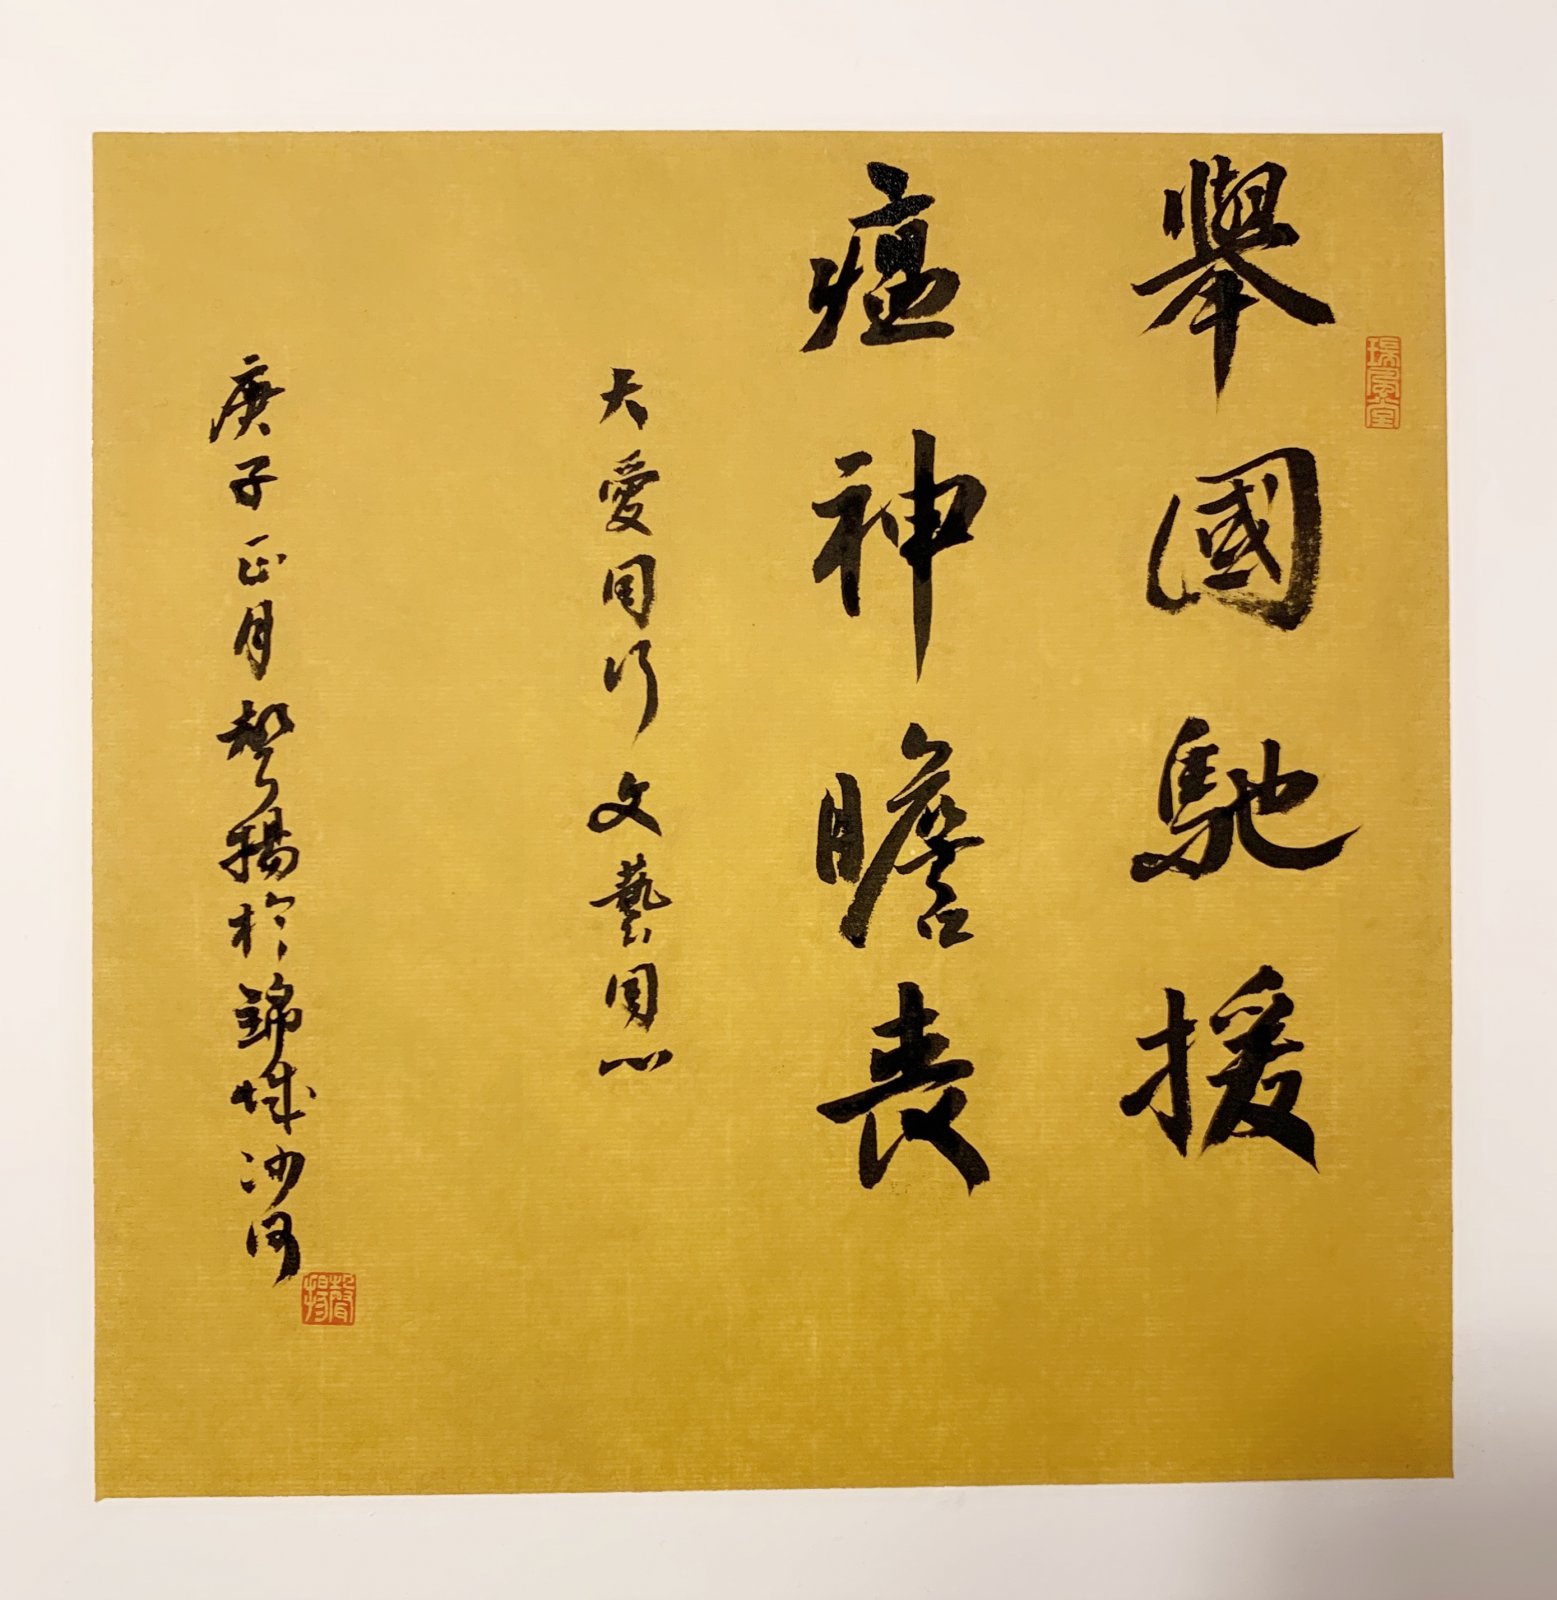 舉國馳援
瘟神膽喪
大愛同行文藝同心
庚子正月聲揚於錦城沙河
瑞風堂
聲揚